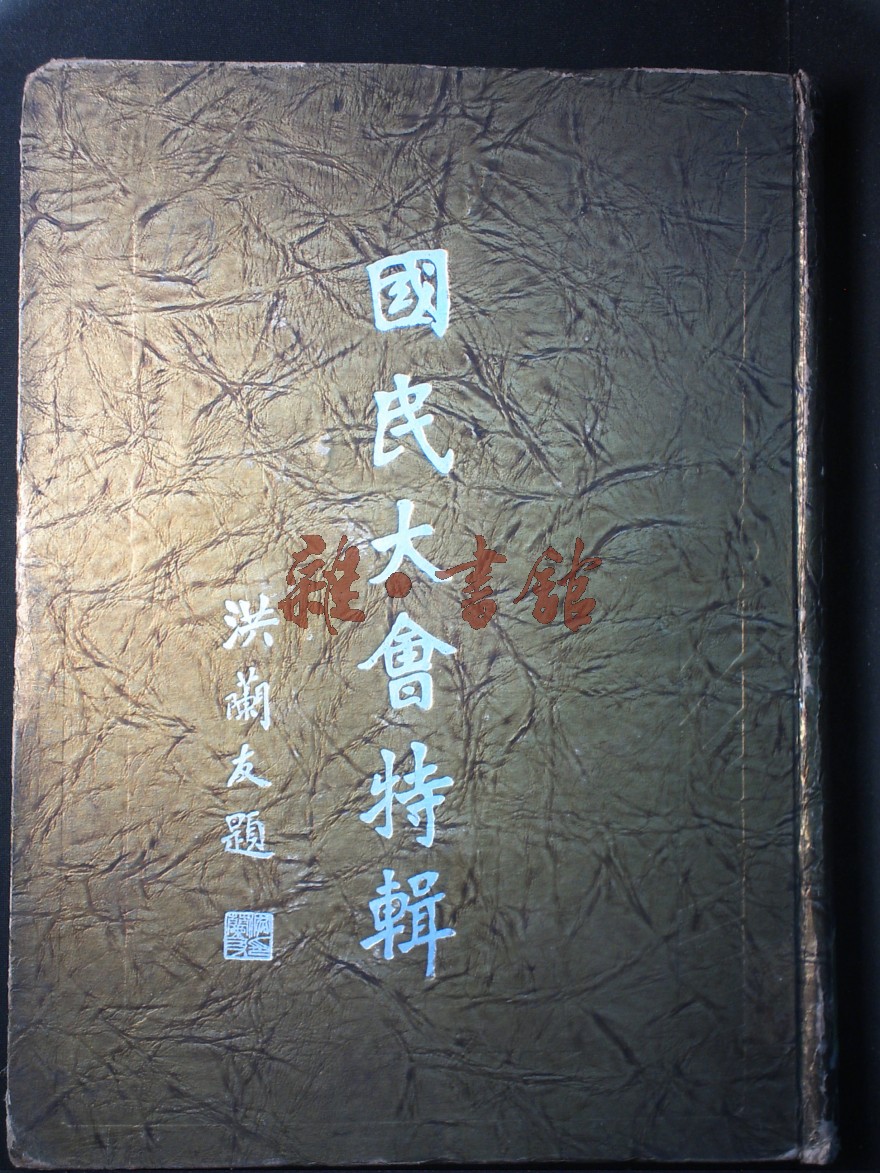 國民大會特輯
洪蘭友題
雜·書館